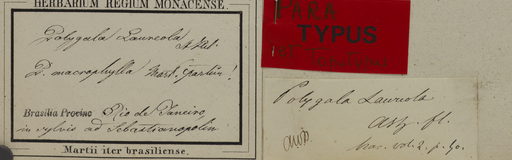 HERBARIUM REGIUM MONACENSE.
Polygala Laureola
A. St Hil.
P. macrophylla Mart. (partim!)
Brasilia Provinc. Rio de Janeiro,
in sylvis ad Sebastianopolin
Martii iter brasiliense.
PARA
TYPUS
Polygala Laureola
St. fl.
bras. vol. 2. p. 40.